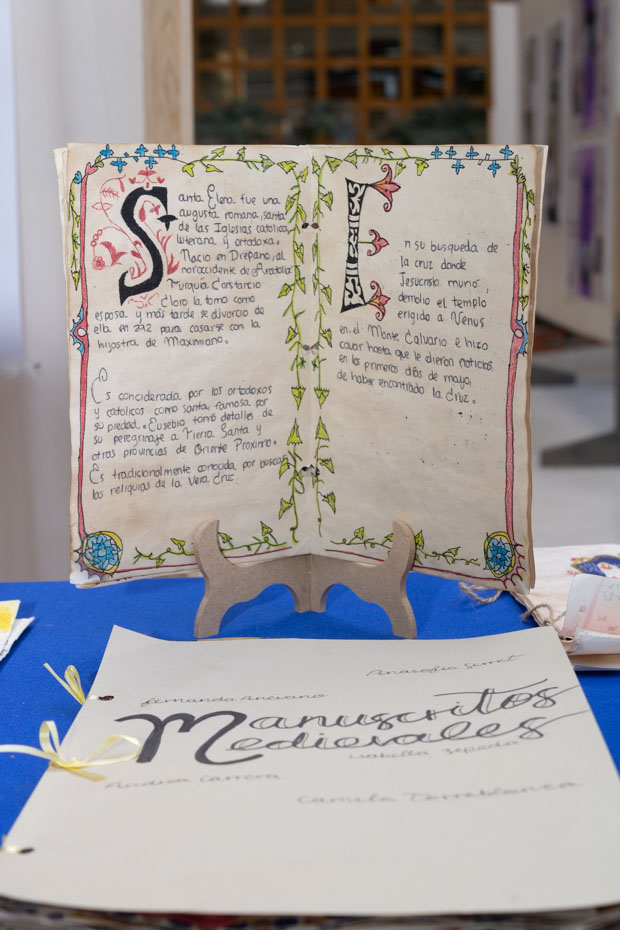 Santa Elena fue una
augusta romana, santa
de las Iglesias catolica,
luterana y ortodoxa.
Nacio en Drepano, al
noroccidente de Anatolia
Turquia Constancio
Cloro la tomo como
esposa y más tarde se divorcio de
ella en 292 para casarse con la
hijastra de Maximiano.
Es conciderada por los ortodoxos
y catolicos como santa, famosa por
su piedad. Eusebio tomó detalles de
su peregrinaje a Tierra Santa y
otras provincias de Oriente Proximo.
Es tradicionalmente conocida por buscar
las reliquias de la Vera Cruz
En su busqueda de
la cruz donde
Jesucristo murió,
demolio el templo
erigido a Venus
en el Monte Calvario e hizo
cavar hasta que le dieron noticias,
en los primeros días de mayo,
de haber encontrado la Cruz.
Anasofia Serret
Fernanda Anciano
Manuscritos
Medievales
Isabella Zepeda
Andrea Carrera
Camila Torreblanca